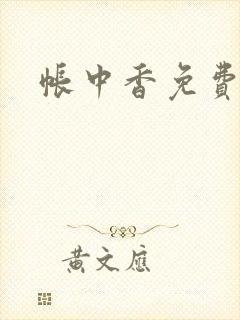 帳中香免費
黃文應